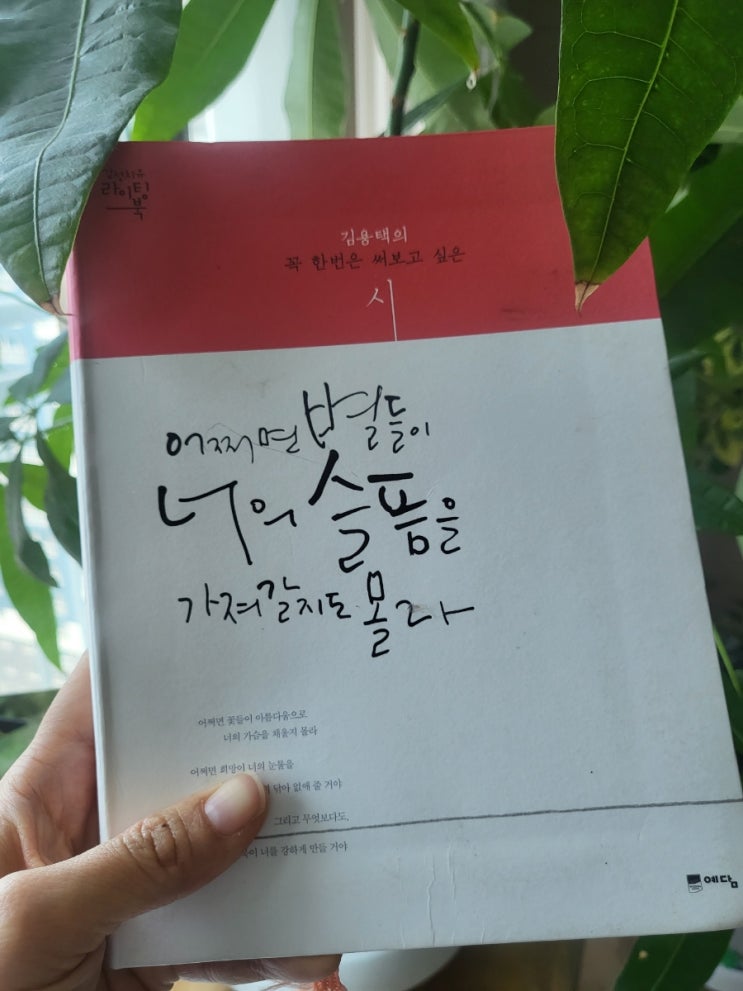 감성치유
라이팅
북
김용택의
꼭 한번은 써보고 싶은
시
어쩌면 별들이
너의 슬픔을
가져갈지도 몰라
어쩌면 꽃들이 아름다움으로
너의 가슴을 채울지 몰라
어쩌면 희망이 너의 눈물을
닦아 없애 줄 거야
그리고 무엇보다도,
너를 강하게 만들 거야
예담